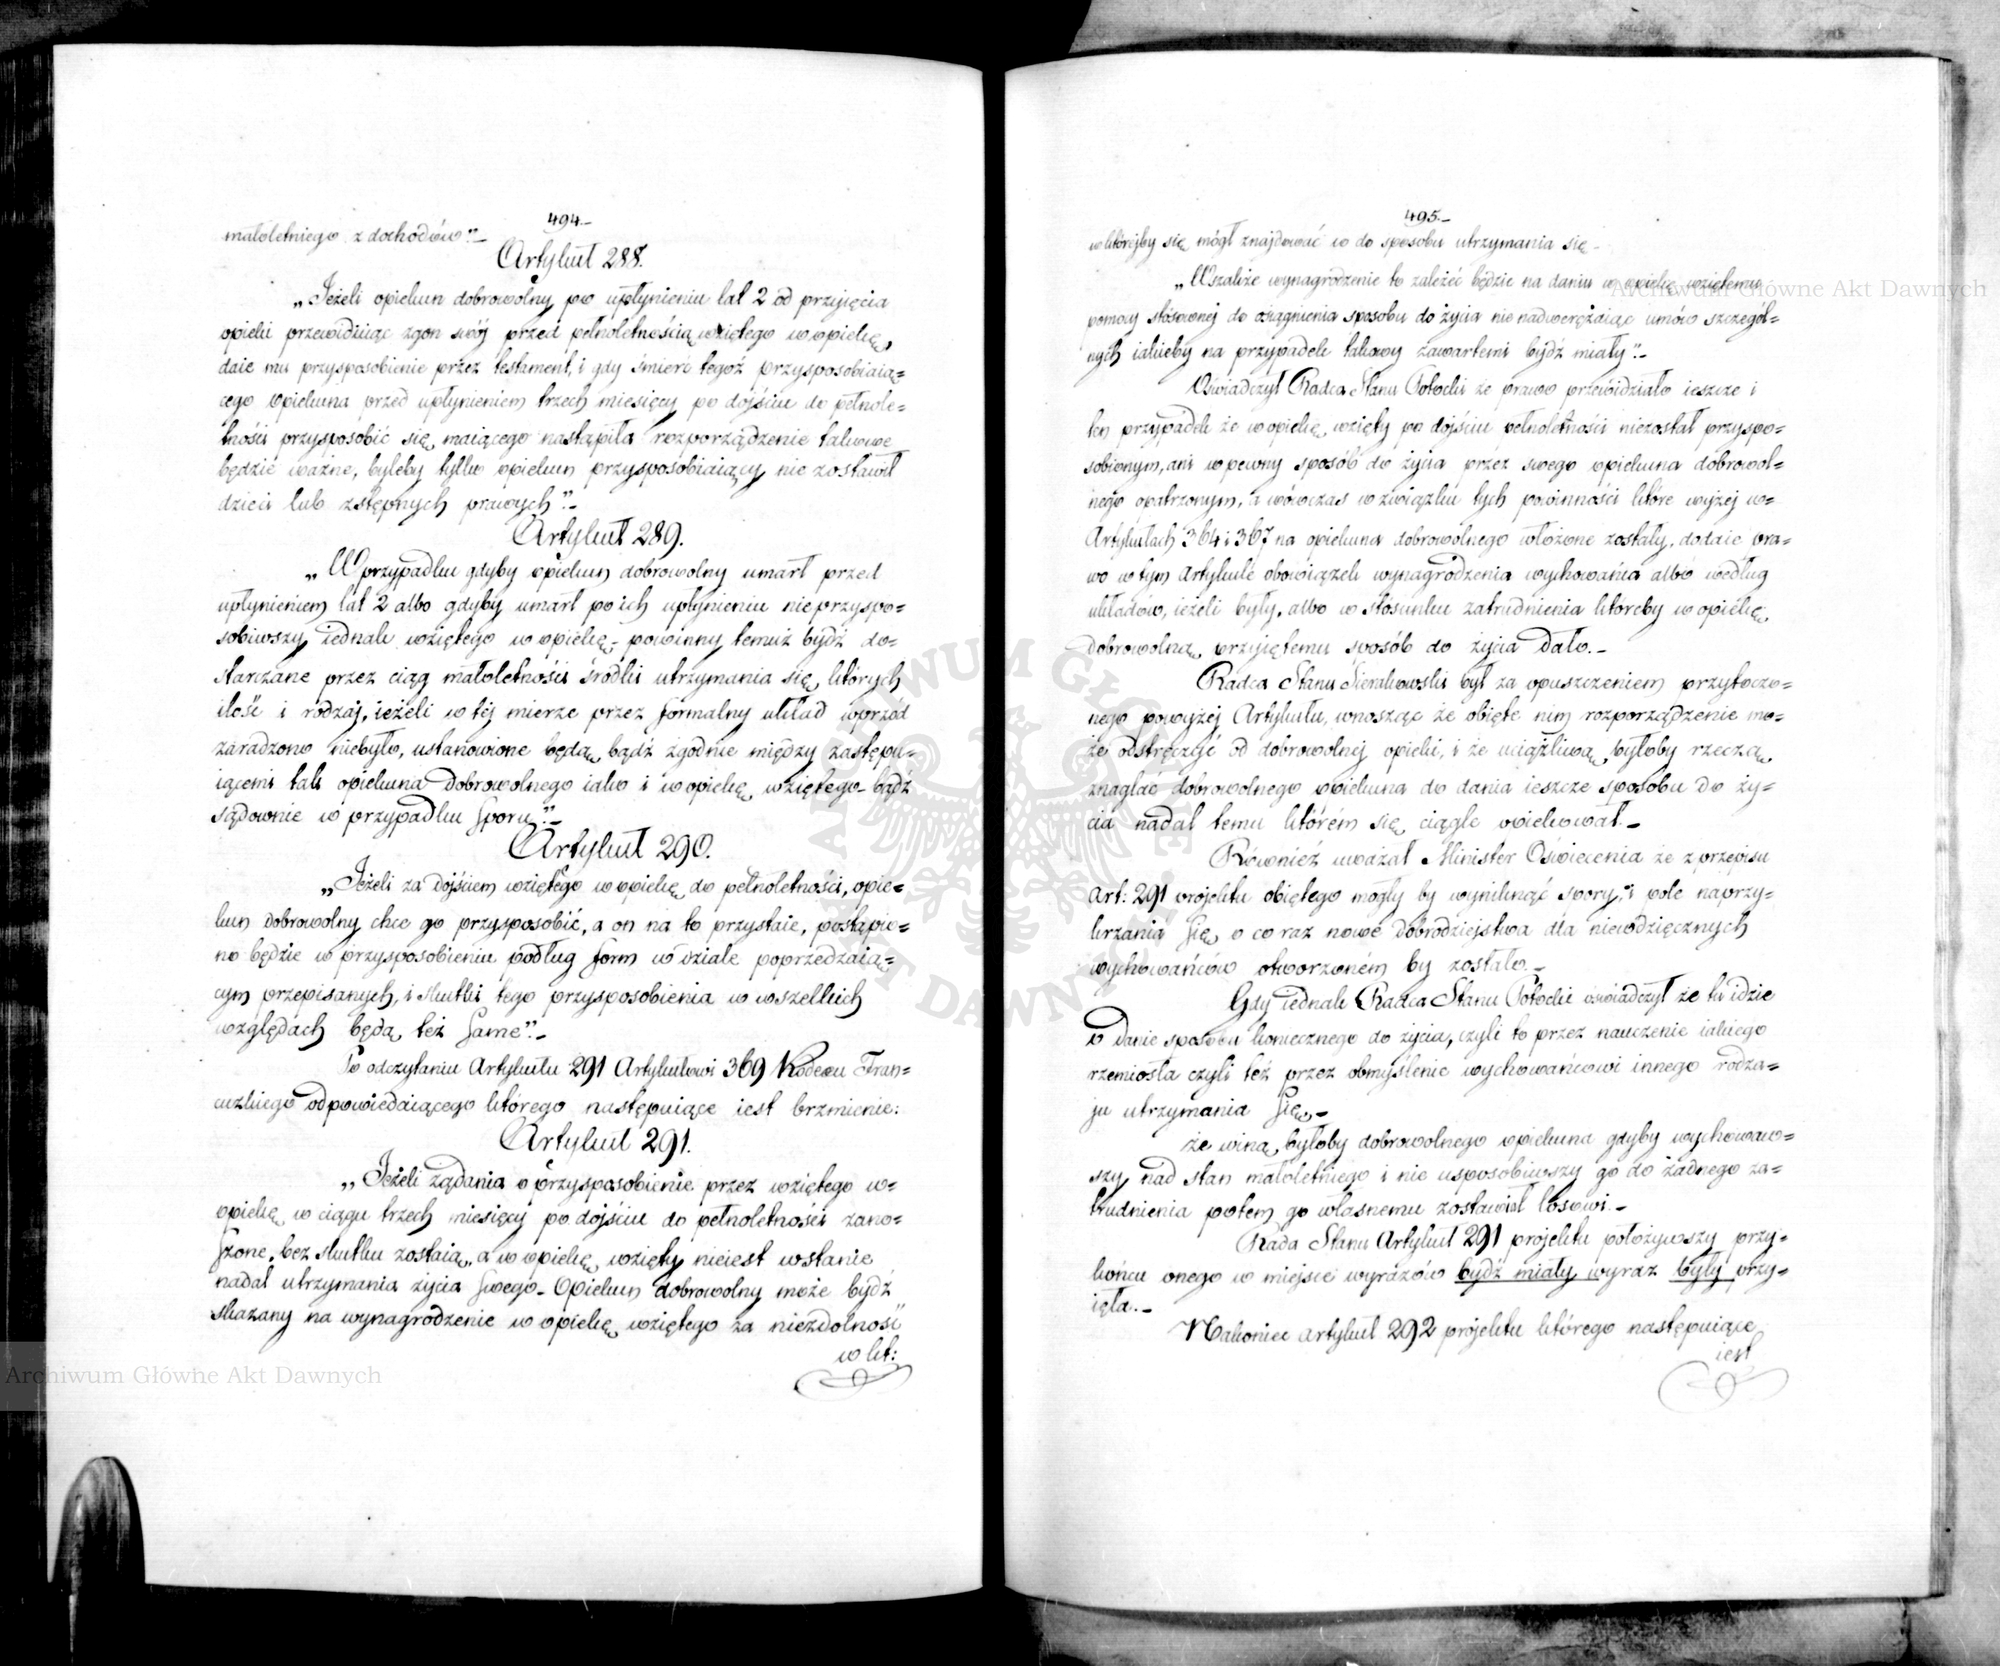 494.
małoletniego z dochodów".
Artykuł 288.
„Jeżeli opiekun dobrowolny po upłynieniu lat 2 od przyięcia
opieki przewiduiąc zgon swóy przed pełnoletnością wziętego w opiekę,
daie mu przysposobienie przez testament, i gdy śmierć tegoż przysposobiaią=
cego opiekuna przed upłynieniem trzech miesięcy po dojściu do pełnole=
tności przysposobić się maiącego nastąpiła rozporządzenie takowe
będzie ważne, byleby tylko opiekun przysposobiaiący nie zostawił
dzieci lub zstępnych prawych".
Artykuł 289.
„W przypadku gdyby opiekun dobrowolny umarł przed
upłynieniem lat 2 albo gdyby umarł po ich upłynieniu nie przyspo=
sobiwszy iednak wziętego w opiekę; powinny temuż bydź do=
starczane przez ciąg małoletności śrzódki utrzymania się, których
ilość i rodzaj, ieżeli w tej mierze przez formalny układ wprzód
zaradzono niebyło, ustanowione będą, bądź zgodnie między zastępu=
iącemi tak opiekuna dobrowolnego iako i w opiekę wziętego - bądź
sądownie w przypadku sporu".
Artykuł 290.
„Jeżeli za dojściem wziętego w opiekę do pełnoletności, opie=
kun dobrowolny chce go przysposobić, a on na to przystaie, postąpio=
no będzie w przysposobieniu podług form w dziale poprzedzaią=
cym przepisanych, i skutki tego przysposobienia w wszelkich
względach będą też same".
Po odczytaniu Artykułu 291 Artykułowi 369 Kodexu Fran=
cuzkiego odpowiedaiącego którego następuiące iest brzmienie:
Artykuł 291.
„Jeżeli żądania o przysposobienie przez wziętego w=
opiekę w ciągu trzech miesięcy po dojściu do pełnoletności zano=
szone, bez skutku zostaią, a w opiekę wzięty nieiest wstanie
nadal utrzymania życia swego - Opiekun dobrowolny może bydź
skazany na wynagrodzenie w opiekę wziętego za niezdolność
w któ:
495.
w którejby się mógł znajdować w do sposobu utrzymania się.
„Wszakże wynagrodzenie to zależeć będzie na daniu w opiekę wziętemu
pomocy stósownej do osiągnienia sposobu do życia nie nadwerężaiąc umów szczegól=
nych iakieby na przypadek takowy zawartemi bydź miały".
Oświadczył Radca Stanu Potocki że prawo przewidziało ieszcze i
ten przypadek że w opiekę wzięty po dojściu pełnoletności niezostał przyspo=
sobionym, ani w pewny sposób do życia przez swego opiekuna dobrowol=
nego opatrzonym, a wówczas w związku tych powinności które wyżej w=
Artykułach 364 i 367 na opiekuna dobrowolnego włożone zostały, dodaie pra=
wo w tym Artykule obowiązek wynagrodzenia wychowańca albo według
układów, ieżeli były, albo w stosunku zatrudnienia któreby w opiekę
dobrowolną przyiętemu sposób do życia dało.
Radca Stanu Sierakowski był za opuszczeniem przytoczo=
nego powyżej Artykułu, wnosząc że obięte nim rozporządzenie mo=
że odstręczyć od dobrowolnej opieki, i że uciążliwą byłoby rzeczą
znaglać dobrowolnego opiekuna do dania ieszcze sposobu do ży=
cia nadal temu którém się ciągle opiekował.
Równieź uważał Minister Oświecenia że z przepisu
Art: 291 projektu obiętego mogły by wyniknąć spory, i pole naprzy=
krzania się o co raz nowe dobrodziejstwa dla niewdzięcznych
wychowańców otworzoném by zostało.
Gdy iednak Radca Stanu Potocki oświadczył że tu idzie
o danie sposobu koniecznego do życia, czyli to przez nauczenie iakiego
rzemiosła czyli też przez obmyślenie wychowańcowi innego rodza=
ju utrzymania się,
że winą byłoby dobrowolnego opiekuna gdyby wychowaw=
szy nad stan małoletniego i nie usposobiwszy go do żadnego za=
trudnienia potem go własnemu zostawił losowi.
Rada Stanu Artykuł 291 projektu położywszy przy=
końcu onego w miejsce wyrazów bydź miały wyraz były przy=
ięła.
Nakoniec Artykuł 292 projektu którego następuiące
iest
ARCHIWUM GŁÓWNE AKT DAWNYCH
Archiwum Główne Akt Dawnych
Archiwum Główne Akt Dawnych